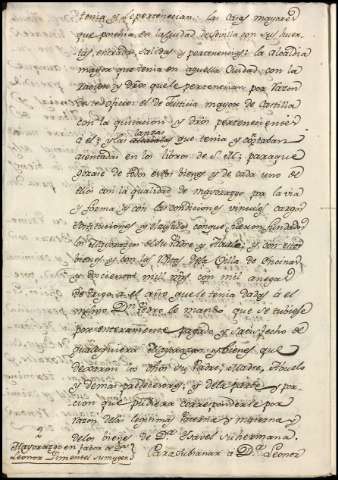 tenia y le pertenecian: las casas mayores
que poseia en la Ciudad de Sevilla con sus huer-
tas, entradas, salidas y pertenencias: la Alcaldia
mayor que tenia en aquella Ciudad, con la
racion y dros que le pertenecian por razon
de este oficio: el de Justicia mayor de Castilla
con la quitacion y dros pertenecientes
à él: y las lanzas que tenia y estaban
asentadas en los libros de S. M.: para que
gozase de todos estos bienes y de cada uno de
ellos con la qualidad de Mayorazgo por la via
y forma, y con las condiciones vinculos cargos
restituciones y clausulas con que fueron fundados
los Mayorazgos de su Padre y Abuelo: y con estos
bienes y con las Villas de la Villa de
y doscientos mil mrs con mil anegas
de trigo à el año que le tenia dados à el
mismo Dn. Pedro le mando que se tubiese
por enteramente pagado y satisfecho de
qualesquiera Mayorazgos y bienes que
dexaron los dhos su Padre, Madre, Abuelo
y demas predecesores; y de la parte y por-
cion que pudiera corresponderle por
razon de las legitimas paterna y materna y
de los bienes de Da. Isavel su hermana.
Mayorazgo en favor de Da.
Leonor Pimentel su muger
Para subsanar a Da. Leonor